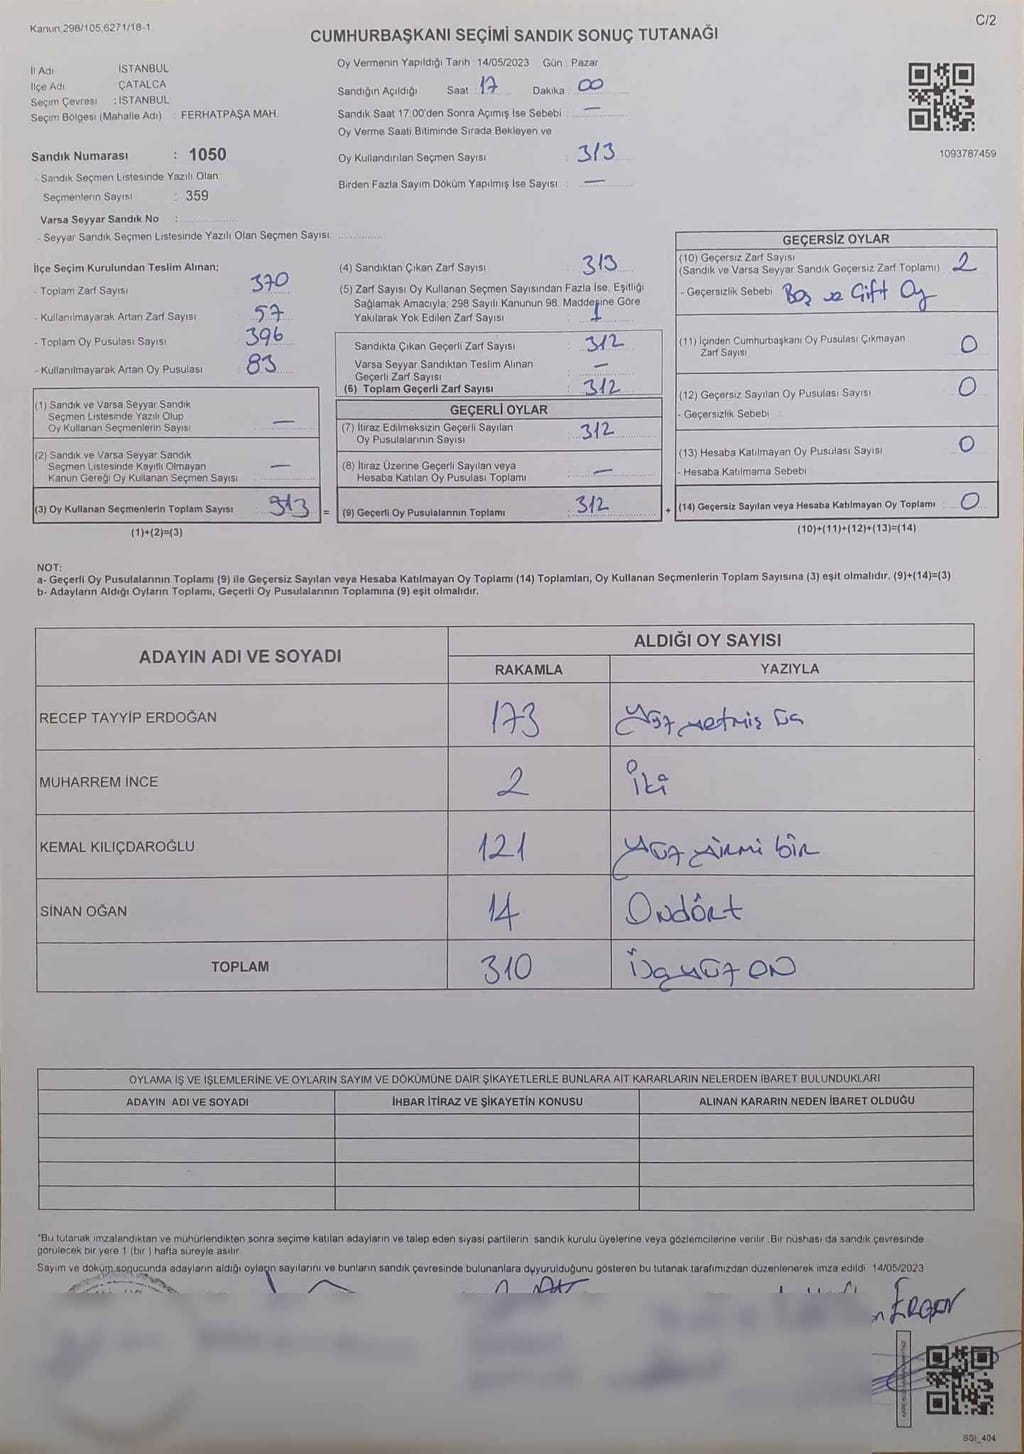 Kanun 298/105 6271/18-1
C/2
CUMHURBAŞKANI SEÇİMİ SANDIK SONUÇ TUTANAĞI
İl Adı : İSTANBUL
İlçe Adı : ÇATALCA
Seçim Çevresi : İSTANBUL
Seçim Bölgesi (Mahalle Adı) : FERHATPAŞA MAH.
Sandık Numarası : 1050
- Sandık Seçmen Listesinde Yazılı Olan
Seçmenlerin Sayısı : 359
Varsa Seyyar Sandık No :
- Seyyar Sandık Seçmen Listesinde Yazılı Olan Seçmen Sayısı:
Oy Vermenin Yapıldığı Tarih : 14/05/2023 Gün : Pazar
Sandığın Açıldığı Saat : 17 Dakika : 00
Sandık Saat 17:00'den Sonra Açımış İse Sebebi : —
Oy Verme Saati Bitiminde Sırada Bekleyen ve
Oy Kullandırılan Seçmen Sayısı : 313
Birden Fazla Sayım Döküm Yapılmış İse Sayısı : —
1093787459
İlçe Seçim Kurulundan Teslim Alınan;
- Toplam Zarf Sayısı : 370
- Kullanılmayarak Artan Zarf Sayısı : 57
- Toplam Oy Pusulası Sayısı : 396
- Kullanılmayarak Artan Oy Pusulası : 83
(1) Sandık ve Varsa Seyyar Sandık
Seçmen Listesinde Yazılı Olup
Oy Kullanan Seçmenlerin Sayısı : —
(2) Sandık ve Varsa Seyyar Sandık
Seçmen Listesinde Kayıtlı Olmayan
Kanun Gereği Oy Kullanan Seçmen Sayısı : —
(3) Oy Kullanan Seçmenlerin Toplam Sayısı : 313 =
(1)+(2)=(3)
(4) Sandıktan Çıkan Zarf Sayısı : 313
(5) Zarf Sayısı Oy Kullanan Seçmen Sayısından Fazla İse, Eşitliği
Sağlamak Amacıyla; 298 Sayılı Kanunun 98. Maddesine Göre
Yakılarak Yok Edilen Zarf Sayısı : 1
Sandıkta Çıkan Geçerli Zarf Sayısı : 312
Varsa Seyyar Sandıktan Teslim Alınan
Geçerli Zarf Sayısı : —
(6) Toplam Geçerli Zarf Sayısı : 312
GEÇERLİ OYLAR
(7) İtiraz Edilmeksizin Geçerli Sayılan
Oy Pusulalarının Sayısı : 312
(8) İtiraz Üzerine Geçerli Sayılan veya
Hesaba Katılan Oy Pusulası Toplamı : —
(9) Geçerli Oy Pusulalarının Toplamı : 312 +
GEÇERSİZ OYLAR
(10) Geçersiz Zarf Sayısı
(Sandık ve Varsa Seyyar Sandık Geçersiz Zarf Toplamı) : 2
- Geçersizlik Sebebi : Boş ve Çift Oy
(11) İçinden Cumhurbaşkanı Oy Pusulası Çıkmayan
Zarf Sayısı : 0
(12) Geçersiz Sayılan Oy Pusulası Sayısı : 0
- Geçersizlik Sebebi :
(13) Hesaba Katılmayan Oy Pusulası Sayısı : 0
- Hesaba Katılmama Sebebi :
(14) Geçersiz Sayılan veya Hesaba Katılmayan Oy Toplamı : 0
(10)+(11)+(12)+(13)=(14)
NOT:
a- Geçerli Oy Pusulalarının Toplamı (9) ile Geçersiz Sayılan veya Hesaba Katılmayan Oy Toplamı (14) Toplamları, Oy Kullanan Seçmenlerin Toplam Sayısına (3) eşit olmalıdır. (9)+(14)=(3)
b- Adayların Aldığı Oyların Toplamı, Geçerli Oy Pusulalarının Toplamına (9) eşit olmalıdır.
ADAYIN ADI VE SOYADI
ALDIĞI OY SAYISI
RAKAMLA YAZIYLA
RECEP TAYYİP ERDOĞAN 173 Yüz yetmiş üç
MUHARREM İNCE 2 İki
KEMAL KILIÇDAROĞLU 121 Yüz yirmi bir
SİNAN OĞAN 14 Ondört
TOPLAM 310 Üçyüz on
OYLAMA İŞ VE İŞLEMLERİNE VE OYLARIN SAYIM VE DÖKÜMÜNE DAİR ŞİKAYETLERLE BUNLARA AİT KARARLARIN NELERDEN İBARET BULUNDUKLARI
ADAYIN ADI VE SOYADI İHBAR İTİRAZ VE ŞİKAYETİN KONUSU ALINAN KARARIN NEDEN İBARET OLDUĞU
*Bu tutanak imzalandıktan ve mühürlendikten sonra seçime katılan adayların ve talep eden siyasi partilerin sandık kurulu üyelerine veya gözlemcilerine verilir. Bir nüshası da sandık çevresinde
görülecek bir yere 1 (bir ) hafta süreyle asılır.
Sayım ve döküm sonucunda adayların aldığı oyların sayılarını ve bunların sandık çevresinde bulunanlara duyurulduğunu gösteren bu tutanak tarafımızdan düzenlenerek imza edildi. 14/05/2023
ERGEN
SSI_404